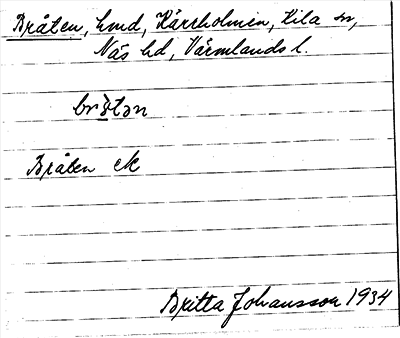 Bråten, hmd, Kärrholmen, Kila sn,
Näs hd, Värmlands l.
Bråten ek
Britta Johansson 1934